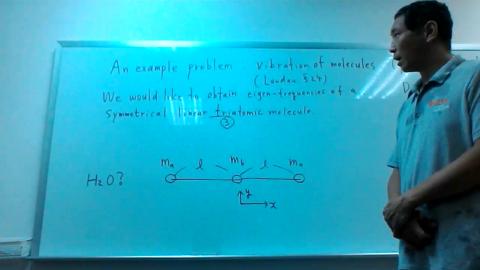 An example problem : Vibration of molecules
(Landau §24)
We would like to obtain eigen-frequencies of a
Symmetrical linear triatomic molecule.
3
ma l mb l ma
H2O?
y
x